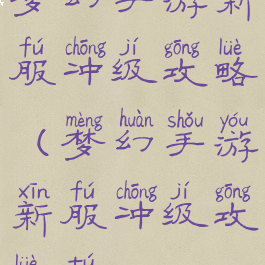 梦幻手游新
fú chōng jí gōng lüè
服冲级攻略
mèng huàn shǒu yóu
(梦幻手游
xīn fú chōng jí gōng
新服冲级攻
lüè tú